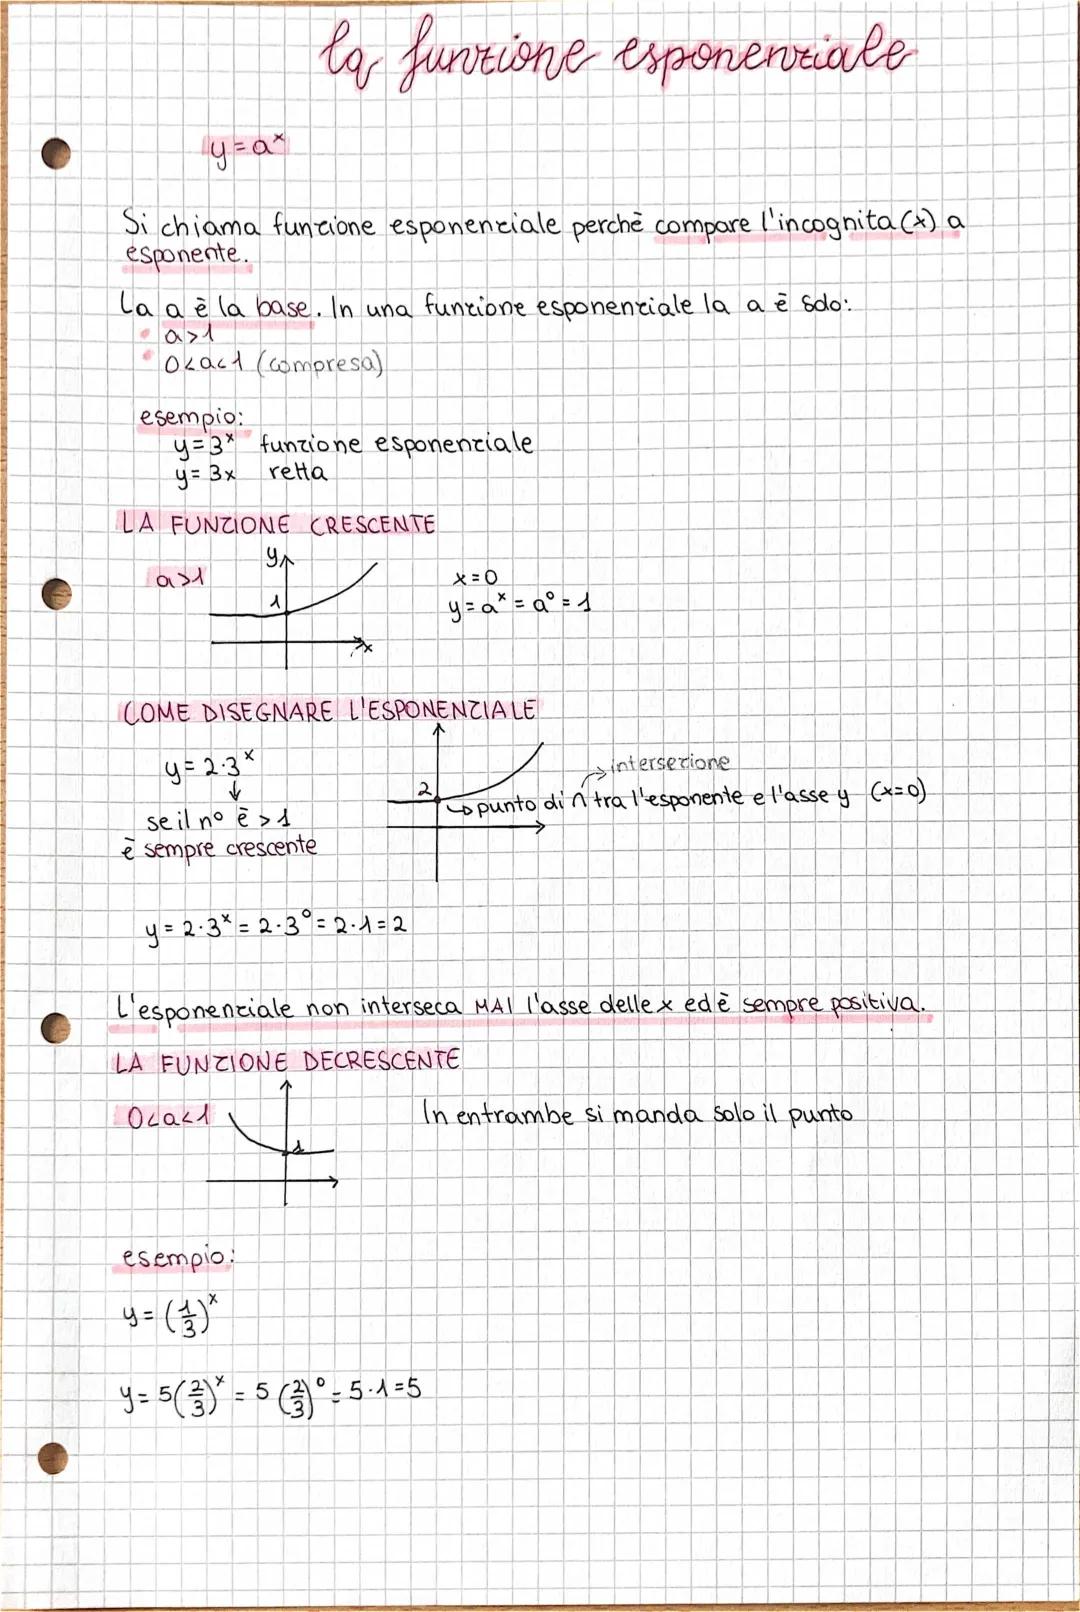 la funzione esponenziale
y=aˣ
Si chiama funzione esponenziale perchè compare l'incognita (x) a
esponente.
La a è la base. In una funzione esponenziale la a è solo:
• a>1
• 0<a<1 (compresa)
esempio:
y=3ˣ funzione esponenziale
y=3x retta
LA FUNZIONE CRESCENTE
a>1
y
1
x
x=0
y=aˣ=a⁰=1
COME DISEGNARE L'ESPONENZIALE
y=2·3ˣ
↓
se il n° è >1
è sempre crescente
2
→intersezione
↳punto di ∩ tra l'esponente e l'asse y (x=0)
y=2·3ˣ=2·3⁰=2·1=2
L'esponenziale non interseca MAI l'asse delle x ed è sempre positiva.
LA FUNZIONE DECRESCENTE
0<a<1
1
In entrambe si manda solo il punto
esempio:
y=(1/3)ˣ
y=5(2/3)ˣ=5(2/3)⁰=5·1=5